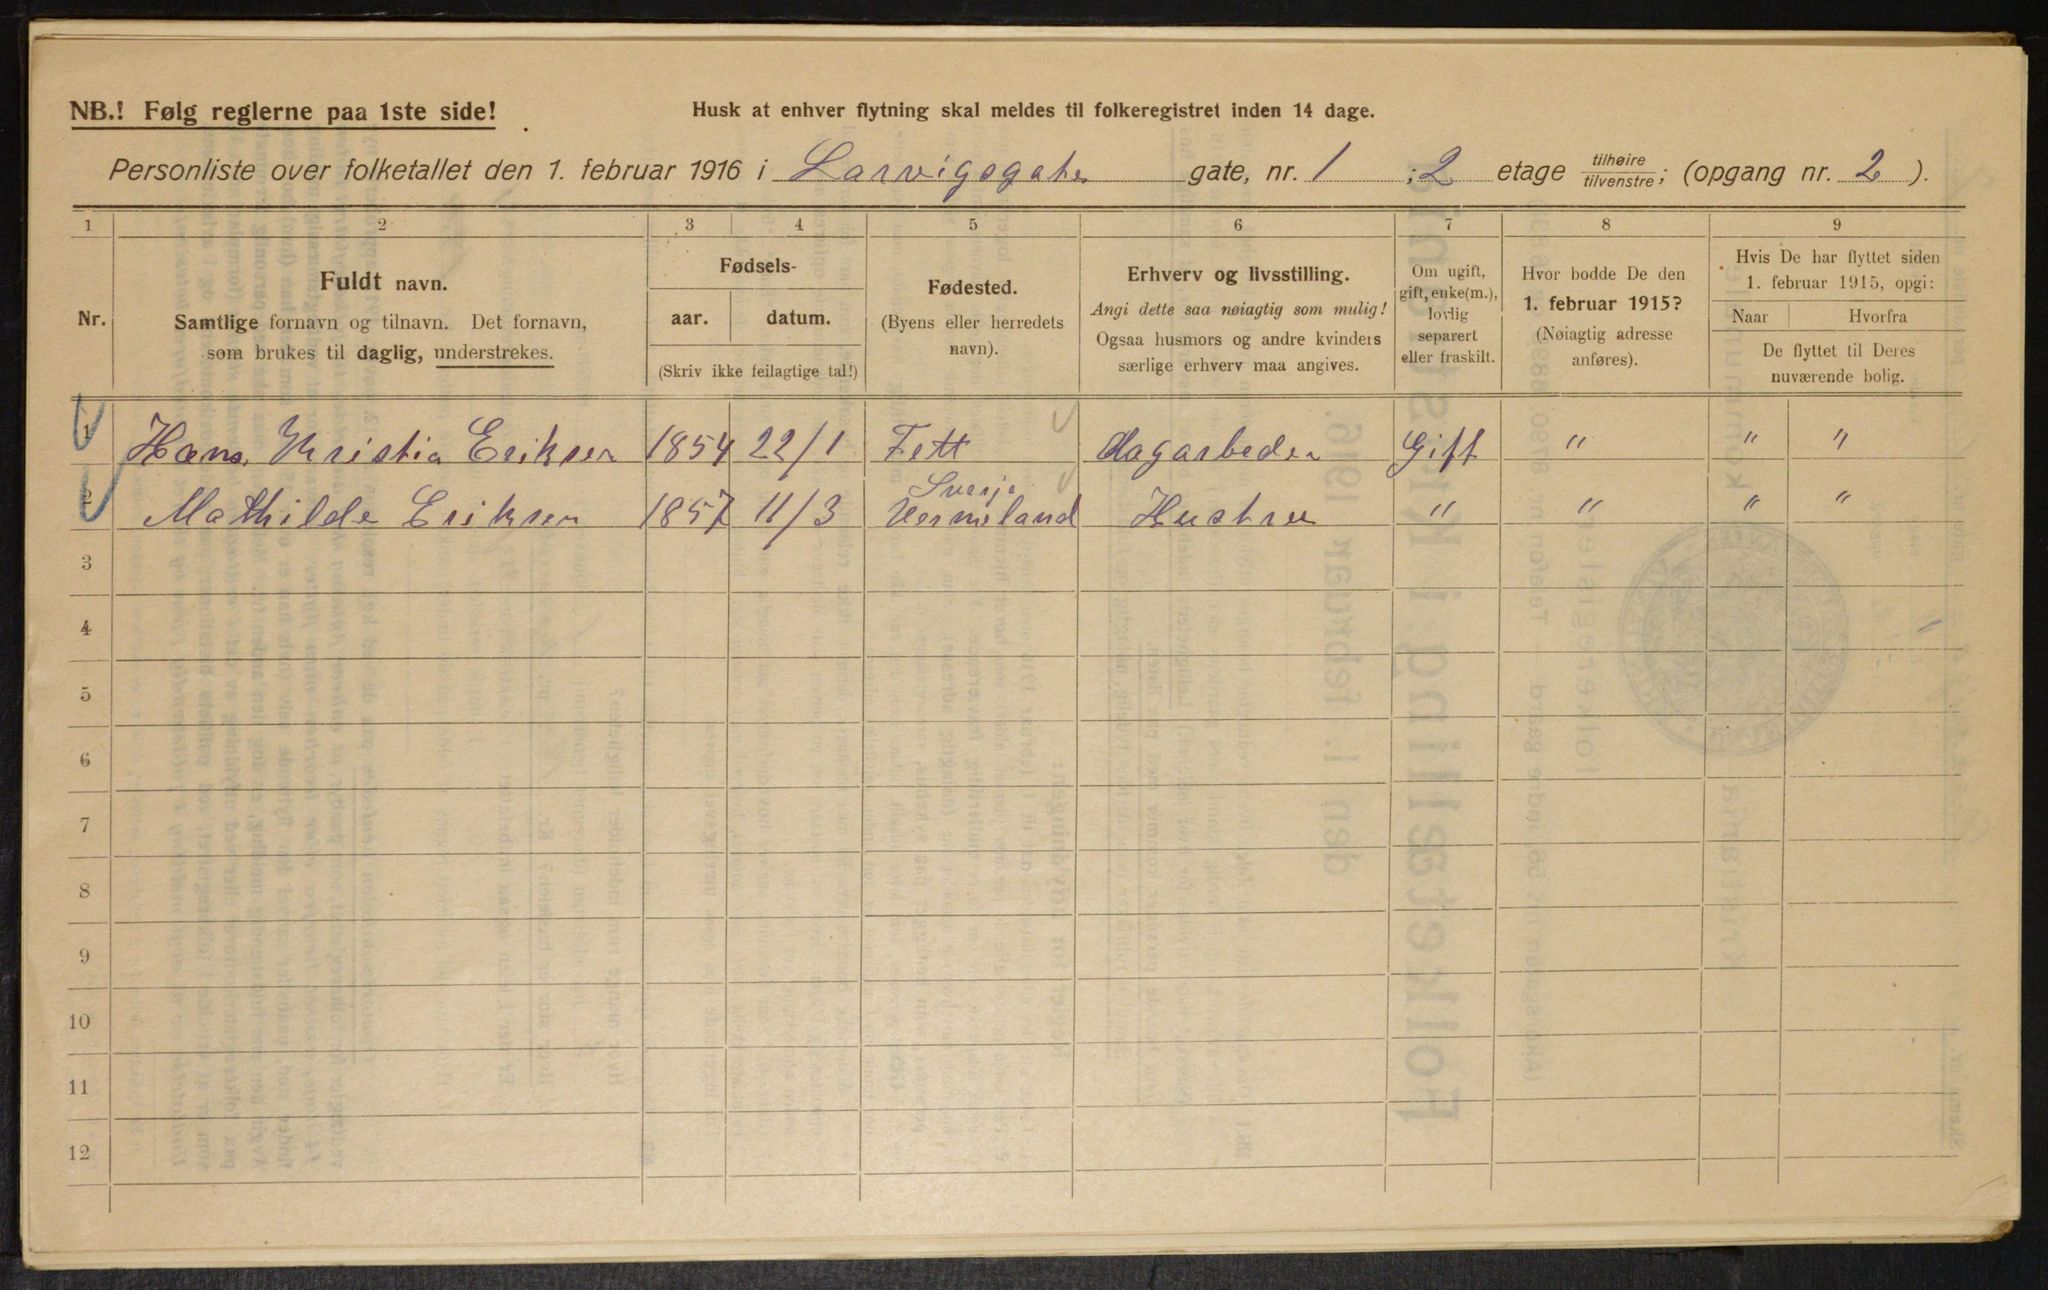 NB.! Følg reglerne paa 1ste side!
Husk at enhver flytning skal meldes til folkeregistret inden 14 dage.
Personliste over folketallet den 1. februar 1916 i Larvigsgaten gate, nr. 1 ; 2 etage tilhøire/tilvenstre; (opgang nr. 2 ).
1 2 3 4 5 6 7 8 9
Nr.
Fuldt navn.
Samtlige fornavn og tilnavn. Det fornavn,
som brukes til daglig, understrekes.
Fødsels-
aar. datum.
(Skriv ikke feilagtige tal!)
Fødested.
(Byens eller herredets
navn).
Erhverv og livsstilling.
Angi dette saa nøiagtig som mulig!
Ogsaa husmors og andre kvinders
særlige erhverv maa angives.
Om ugift,
gift, enke(m.),
lovlig
separert
eller fraskilt.
Hvor bodde De den
1. februar 1915?
(Nøiagtig adresse
anføres).
Hvis De har flyttet siden
1. februar 1915, opgi:
Naar Hvorfra
De flyttet til Deres
nuværende bolig.
1 Hans Kristia Eriksen 1854 22/1 Fett dagarbeder Gift " " "
2 Mathilde Eriksen 1857 11/3 Sverje Vermeland Hustru " " " "
3
4
5
6
7
8
9
10
11
12